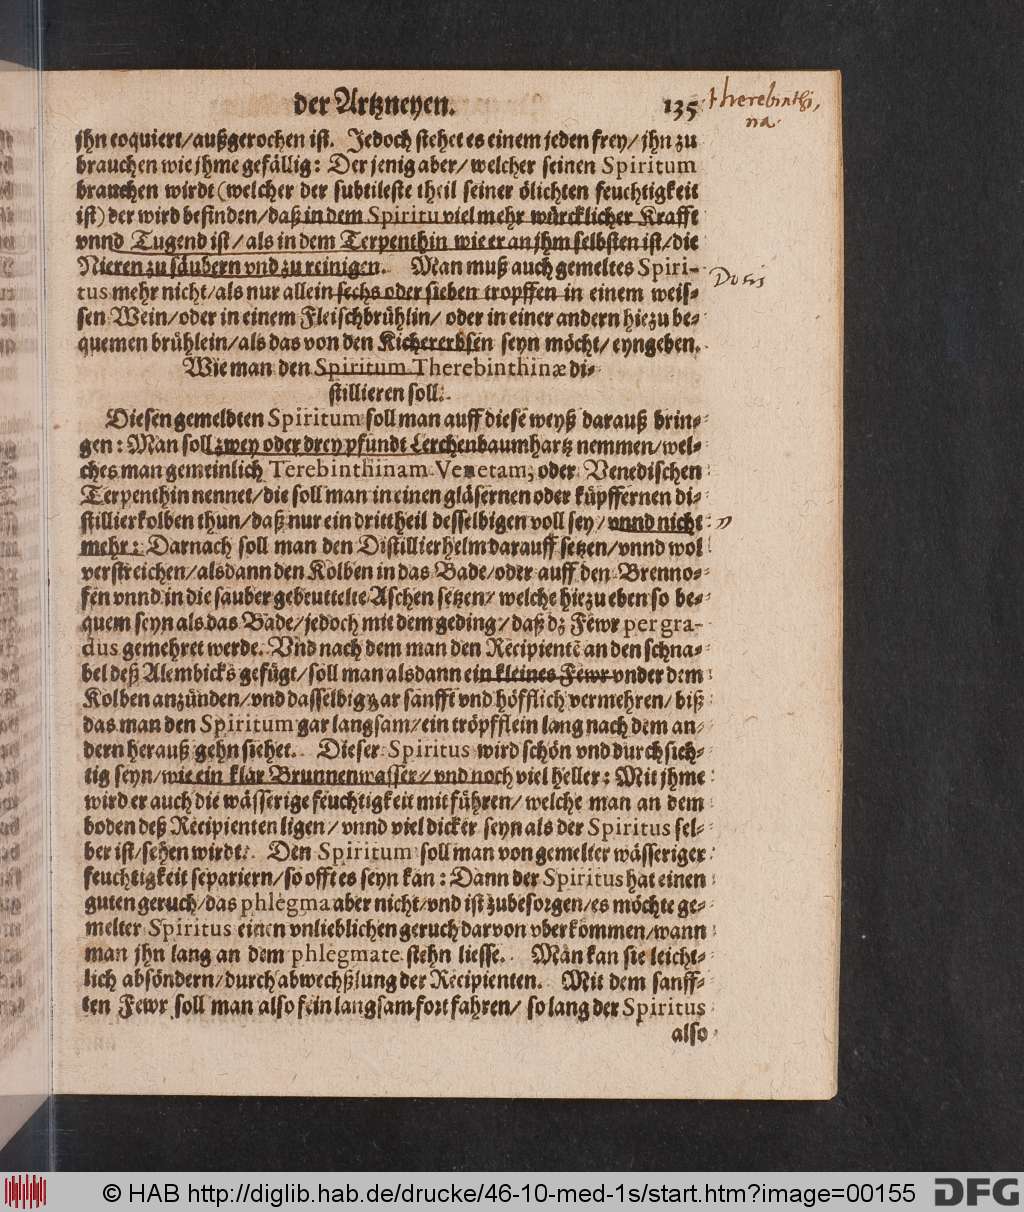 der Artzneyen. 135 therebinthi,
na.
jhn coquiert/außgerochen ist. Jedoch stehet es einem jeden frey/ jhn zu
brauchen wie jhme gefällig: Der jenig aber/ welcher seinen Spiritum
brauchen wirdt (welcher der subtileste theil seiner ölichten feuchtigkeit
ist) der wird befinden/daß in dem Spiritu viel mehr würcklicher Krafft
vnnd Tugend ist/als in dem Terpenthin wie er an jhm selbsten ist/die
Nieren zu säubern vnd zu reinigen. Man muß auch gemeltes Spiri-
Dosis
tus mehr nicht/als nur allein sechs oder sieben tropffen in einem weis-
sen Wein/oder in einem Fleischbrühlin/ oder in einer andern hiezu be-
quemen brühlein/als das von den Kichererbsen seyn möcht/ eyngeben.
Wie man den Spiritum Therebinthinæ di-
stillieren soll.
Diesen gemeldten Spiritum soll man auff diese weyß darauß brin-
gen: Man soll zwey oder drey pfundt Lerchenbaumhartz nemmen/wel-
ches man gemeinlich Terebinthinam Venetam, oder Venedischen
Terpenthin nennet/die soll man in einen gläsernen oder küpffernen di-
stillierkolben thun/daß nur ein drittheil desselbigen voll sey/vnnd nicht
mehr: Darnach soll man den Distillierhelm darauff setzen/vnnd wol
verstreichen/alsdann den Kolben in das Bade/oder auff den Brenno-
fen vnnd in die sauber gebeuttelte Aschen setzen/ welche hiezu eben so be-
quem seyn als das Bade/jedoch mit dem geding/ daß dz Fewr per gra-
dus gemehret werde. Vnd nach dem man den Recipientē an den schna-
bel deß Alembicks gefügt/soll man alsdann ein kleines Fewr vnder dem
Kolben anzünden/vnd dasselbig gar sanfft vnd höfflich vermehren/ biß
das man den Spiritum gar langsam/ein tröpfflein lang nach dem an-
dern herauß gehn siehet. Dieser Spiritus wird schön vnd durchsich-
tig seyn/wie ein klar Brunnenwasser/ vnd noch viel heller: Mit jhme
wird er auch die wässerige feuchtigkeit mit führen/ welche man an dem
boden deß Recipienten ligen/ vnnd viel dicker seyn als der Spiritus sel-
ber ist/sehen wirdt. Den Spiritum soll man von gemelter wässeriger
feuchtigkeit separiern/so offt es seyn kan: Dann der Spiritus hat einen
guten geruch/das phlegma aber nicht/vnd ist zubesorgen/es möchte ge-
melter Spiritus einen vnlieblichen geruch darvon vberkommen/wann
man jhn lang an dem phlegmate stehn liesse. Man kan sie leicht-
lich absöndern/durch abwechßlung der Recipienten. Mit dem sanff-
ten Fewr soll man also fein langsam fort fahren/ so lang der Spiritus
also
© HAB http://diglib.hab.de/drucke/46-10-med-1s/start.htm?image=00155 DFG